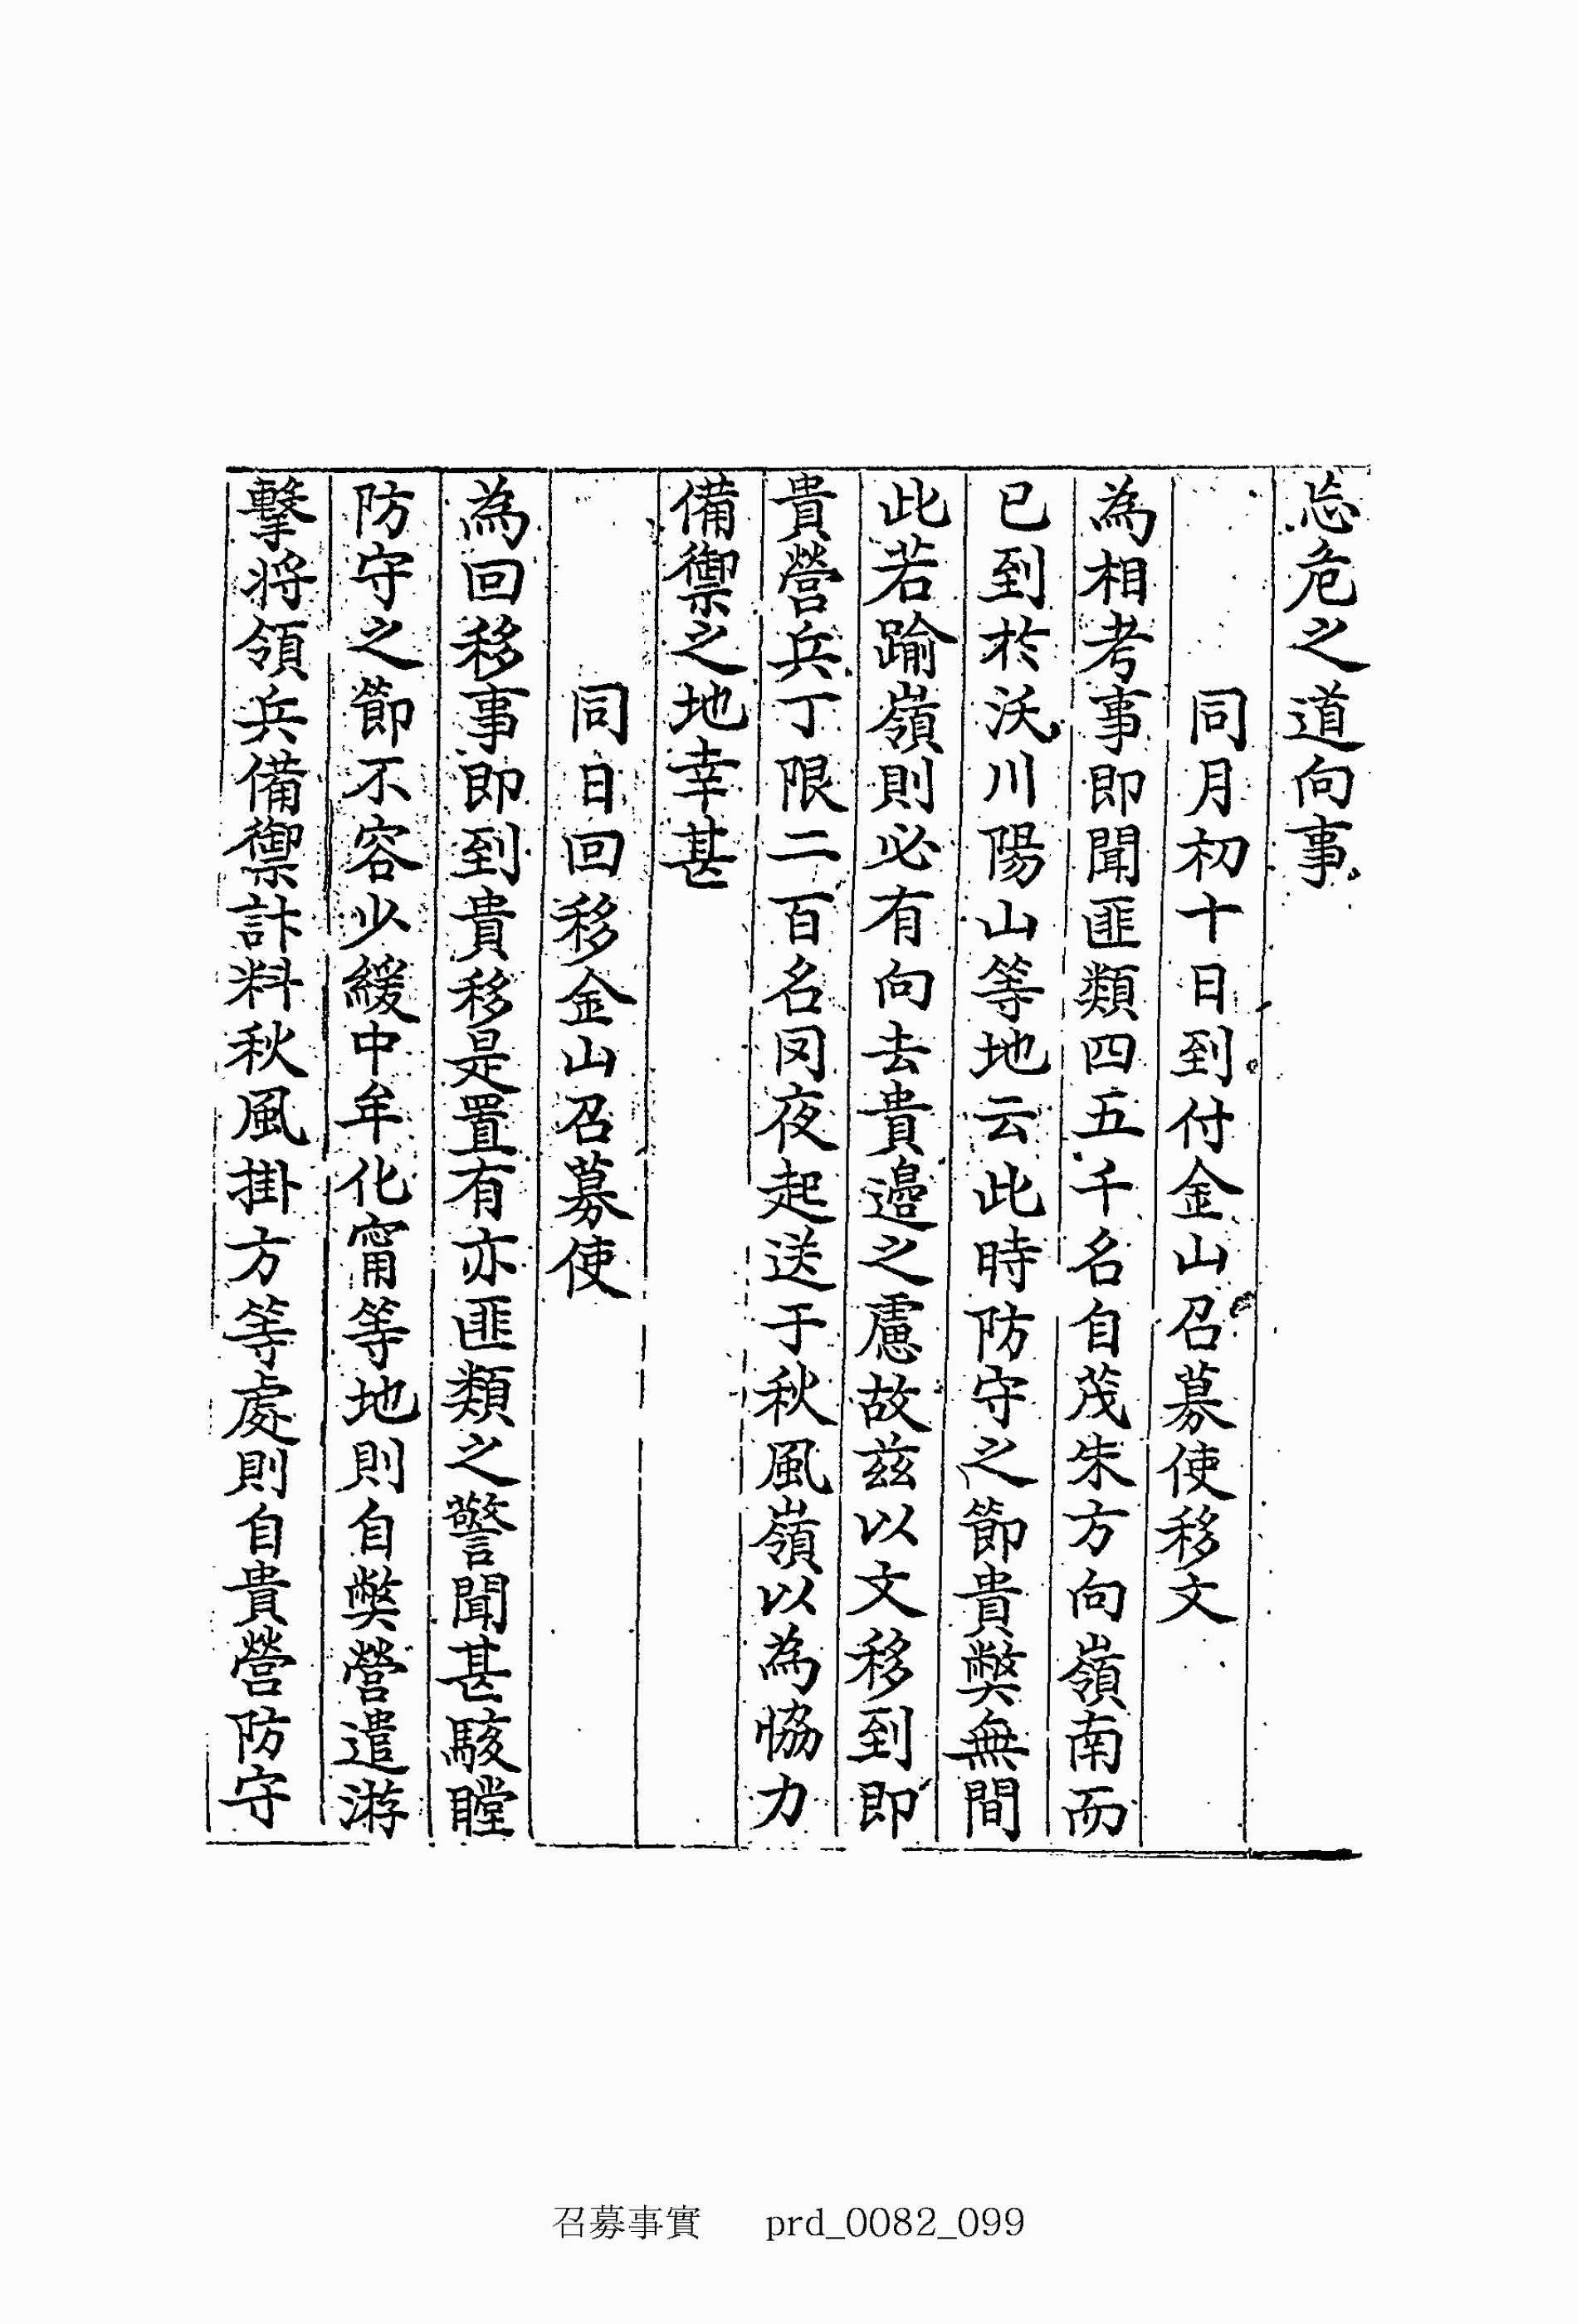 忘危之道向事
同月初十日到付金山召募使移文
為相考事即聞匪類四五千名自茂朱方向嶺南而
已到於沃川陽山等地云此時防守之節貴弊無間
此若踰嶺則必有向去貴邊之慮故玆以文移到即
貴營兵丁限二百名罔夜起送于秋風嶺以為恊力
備禦之地幸甚
同日回移金山召募使
為回移事即到貴移是置有亦匪類之警聞甚駭瞠
防守之節不容少緩中牟化甯等地則自弊營遣游
擊將領兵備禦計料秋風掛方等處則自貴營防守
召募事實 prd_0082_099